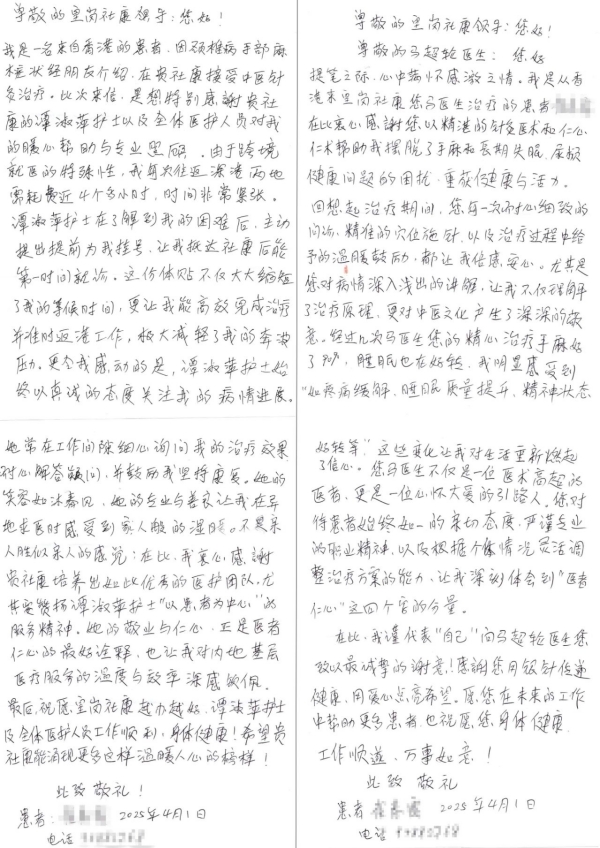 尊敬的里岗社康领导：您好！
我是一名来自香港的患者，因颈椎病手部麻
木症状经朋友介绍，在贵社康接受中医针
灸治疗。此次来信，是想特别感謝贵社
康的谭淑萍护士以及全体医护人员对我
的暖心帮助与专业照顾。由于跨境
就医的特殊性，我每次往返深港两地
需耗费近4个多小时，时间非常紧张。
谭淑萍护士在了解到我的困难后，主动
提出提前为我挂号，让我抵达社康后能
第一时间就诊。这份体贴不仅大大缩短
了我的等候时间，更让我能高效完成治疗
并准时返港工作，极大减轻了我的奔波
压力。更令我感动的是，谭淑萍护士始
终以真诚的态度关注我的病情进展。
她常在工作间隙细心询问我的治疗效果
耐心解答疑问，并鼓励我坚持康复。她的
笑容如沐春风，她的专业与善良让我在异
地求医时感受到家人般的温暖。不是亲
人胜似亲人的感觉；在此，我衷心感謝
贵社康培养出如此优秀的医护团队。尤
其要赞扬谭淑萍护士"以患者为中心"的
服务精神。她的敬业与仁心，正是医者
仁心的最好诠释，也让我对内地基层
医疗服务的温度与效率深感钦佩。
最后，祝愿里岗社康越办越好，谭淑萍护士
及全体医护人员工作顺利，身体健康！希望贵
社康能涌现更多这样温暖人心的榜样！
此致 敬礼！
患者：
2025年4月1日
电话
尊敬的里岗社康领导：您好！
尊敬的马超轮医生：您好
提笔之际，心中满怀感激之情。我是从香
港来里岗社康您马医生治疗的患者
在此衷心感謝您，以精湛的针灸医术和仁心
仁术帮助我摆脱了手麻和長期失眠，尿频
健康问题的困扰，重获健康与活力。
回想起治疗期间，您每一次耐心细致的
问诊，精准的穴位施针，以及治疗过程中给
予的温暖鼓励，都让我倍感安心。尤其是
您对病情深入浅出的讲解，让我不仅理解
了治疗原理，更对中医文化产生了深深的敬
意。经过几次马医生您的精心治疗手麻好
了70%，睡眠也在好转，我明显感受到
"如疼痛缓解，睡眠质量提升，精神状态
好转等"这些变化让我对生活重新燃起
了信心。您马医生不仅是一位医术高超的
医者，更是一位心怀大爱的引路人。您对
待患者始终如一的亲切态度，严谨专业
的职业精神，以及根据个体情况灵活调
整治疗方案的能力，让我深刻体会到"医者
仁心"这四个字的分量。
在此，我谨代表"自己"向马超轮医生您
致以最诚挚的谢意！感謝您用银针传递
健康，用爱心点亮希望。愿您在未来的工作
中帮助更多患者，也祝愿您身体健康
工作顺遂，万事如意！
此致 敬礼
患者
2025年4月1日
电话